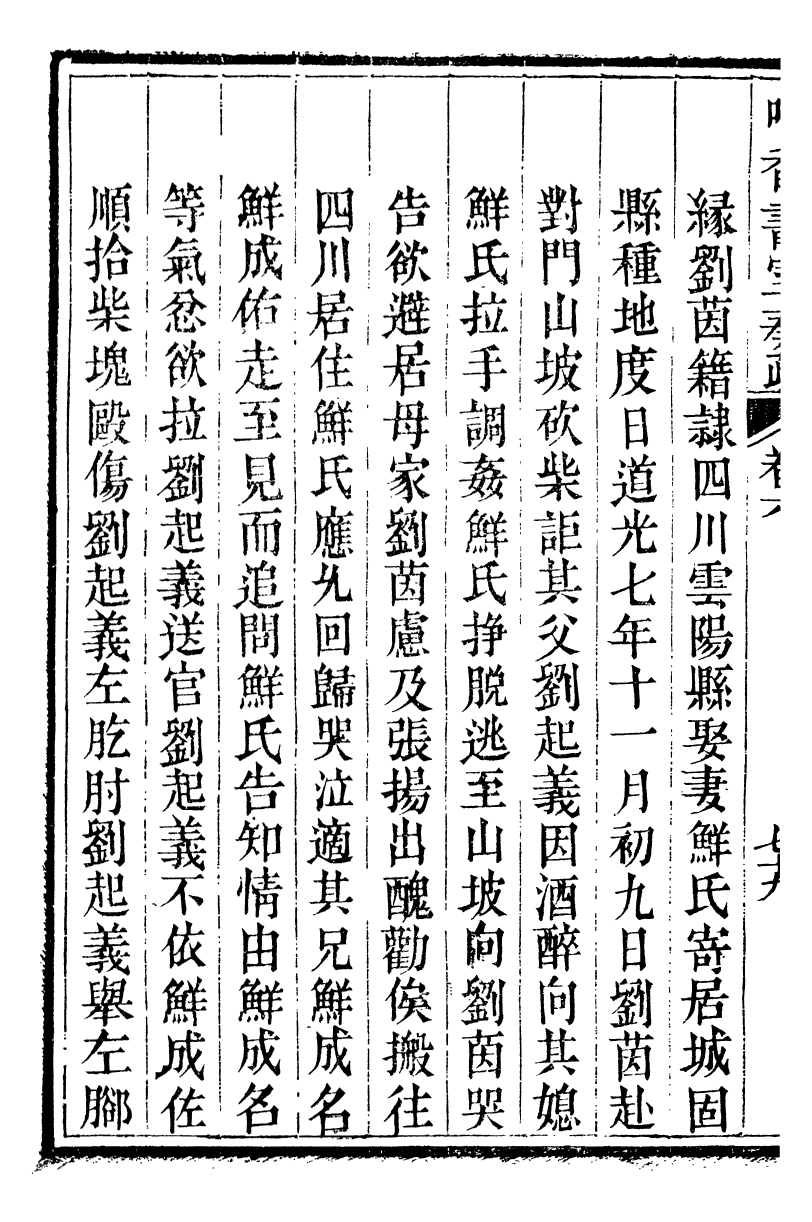 緣劉茵籍隷四川雲陽縣娶妻鮮氏寄居城固
縣種地度日道光七年十一月初九日劉茵赴
對門山坡砍柴詎其父劉起義因酒醉向其媳
鮮氏拉手調姦鮮氏掙脫逃至山坡向劉茵哭
告欲避居母家劉茵慮及張揚出醜勸俟搬往
四川居住鮮氏應允回歸哭泣適其兄鮮成名
鮮成佑走至見而追問鮮氏告知情由鮮成名
等氣忿欲拉劉起義送官劉起義不依鮮成佐
順拾柴塊毆傷劉起義左肐肘劉起義舉左腳